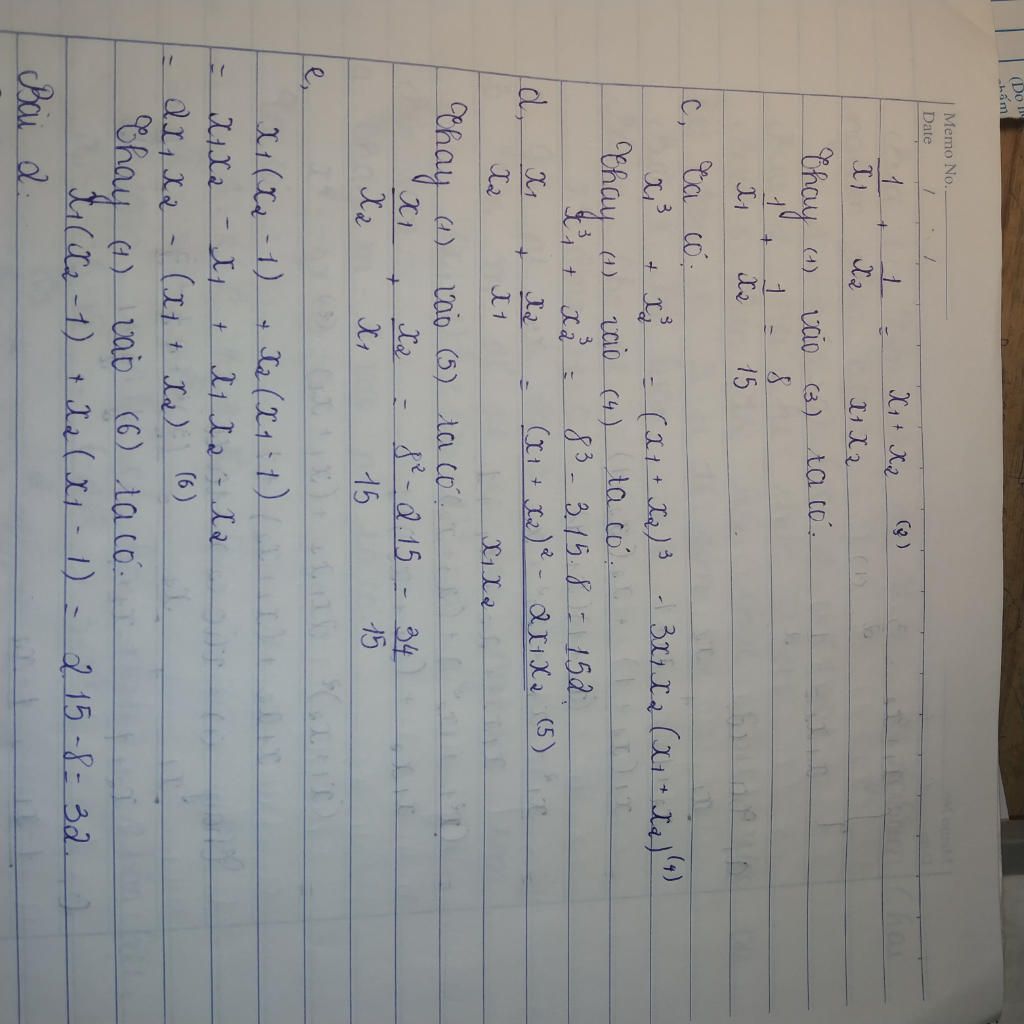 Memo No.
Date / /
1/x₁ + 1/x₂ = (x₁ + x₂)/(x₁x₂) (3)
Thay (1) vào (3) ta có:
1/x₁ + 1/x₂ = 8/15
c, Ta có:
x₁³ + x₂³ = (x₁ + x₂)³ - 3x₁x₂ (x₁ + x₂) (4)
Thay (1) vào (4) ta có:
x₁³ + x₂³ = 8³ - 3.15.8 = 152.
d, x₁/x₂ + x₂/x₁ = ((x₁ + x₂)² - 2x₁x₂)/(x₁x₂) (5)
Thay (1) vào (5) ta có:
x₁/x₂ + x₂/x₁ = (8² - 2.15)/15 = 34/15
e,
x₁(x₂ - 1) + x₂(x₁ - 1)
= x₁x₂ - x₁ + x₁x₂ - x₂
= 2x₁x₂ - (x₁ + x₂) (6)
Thay (1) vào (6) ta có:
x₁(x₂ - 1) + x₂(x₁ - 1) = 2 15 - 8 = 32.
Bài 2: